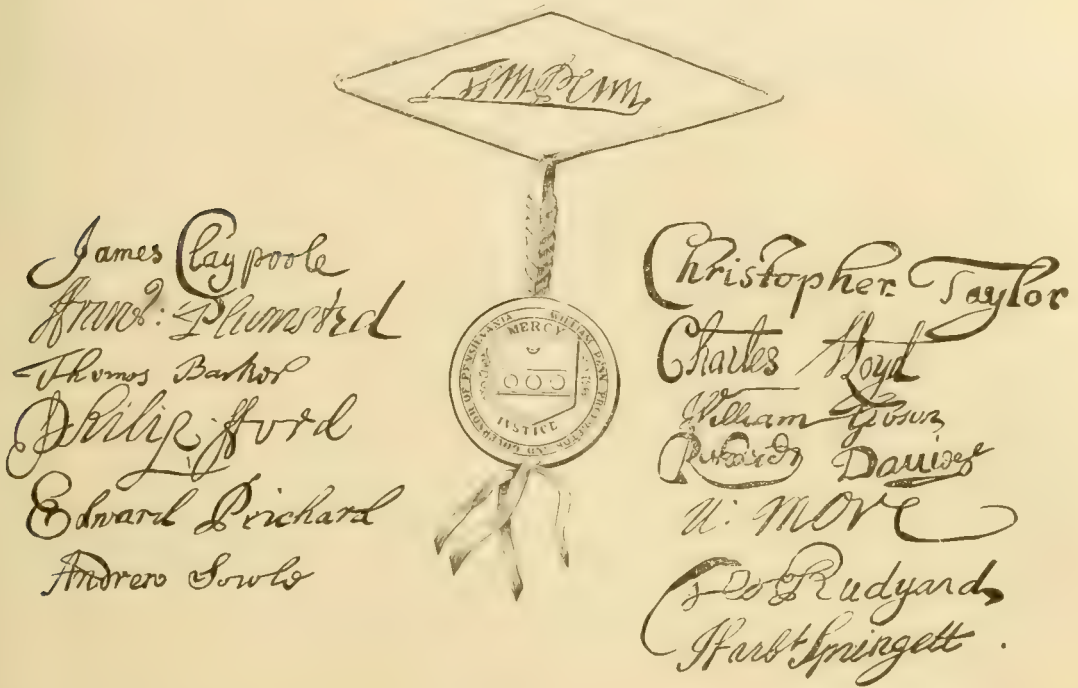 Wm Penn
James Claypoole
ffrans: Plumsted
Thomas Barker
Philip fford
Edward Prichard
Andrew Sowle
WILLIAM PENN PROPRIETOR AND GOVERNOR OF PENSILVANIA
MERCY
IVSTICE
Christopher Taylor
Charles Lloyd
William Gibson
Richard Davies
N: More
Tho Rudyard
Harbt Springett.